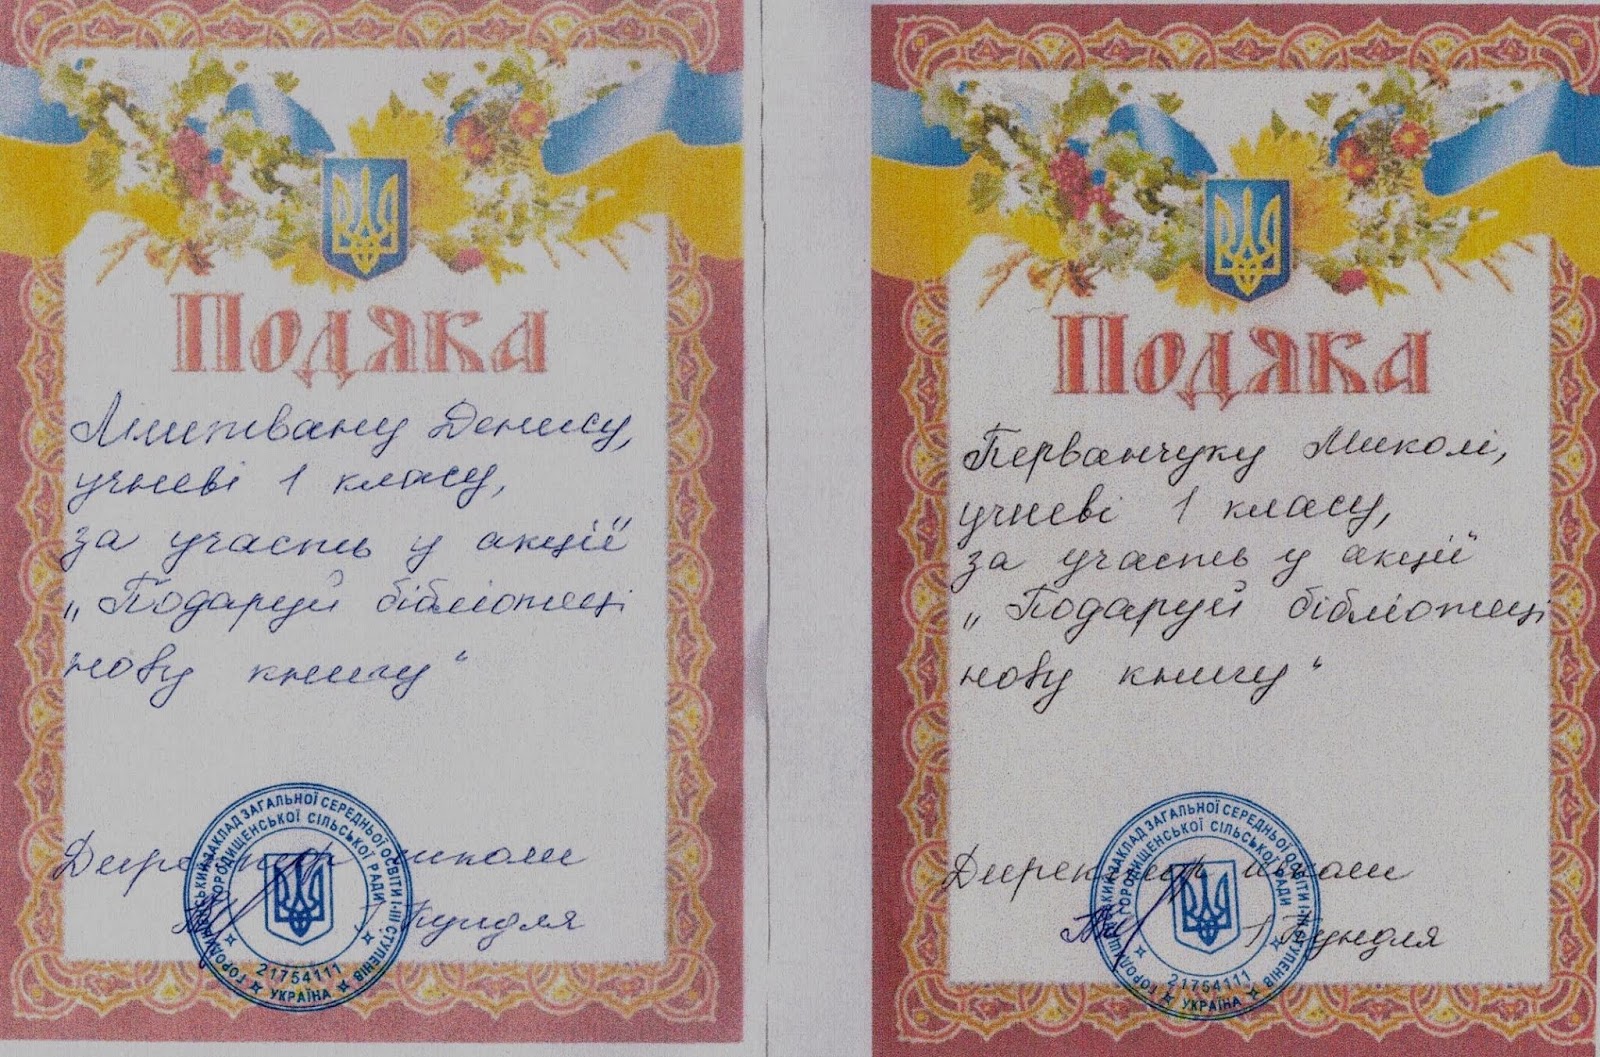 Подяка
Денису,
учневі 1 класу,
за участь у акції
„Подаруй бібліотеці
нову книгу“
Директор школи
Пундля
ЗАКЛАД ЗАГАЛЬНОЇ СЕРЕДНЬОЇ ОСВІТИ І-ІІІ СТУПЕНІВ
ГОРОДИЩЕНСЬКОЇ СІЛЬСЬКОЇ РАДИ
21754111
УКРАЇНА
Подяка
Первачуку Миколі,
учневі 1 класу,
за участь у акції
„Подаруй бібліотеці
нову книгу“
Директор школи
Пундля
ЗАКЛАД ЗАГАЛЬНОЇ СЕРЕДНЬОЇ ОСВІТИ І-ІІІ СТУПЕНІВ
ГОРОДИЩЕНСЬКОЇ СІЛЬСЬКОЇ РАДИ
21754111
УКРАЇНА